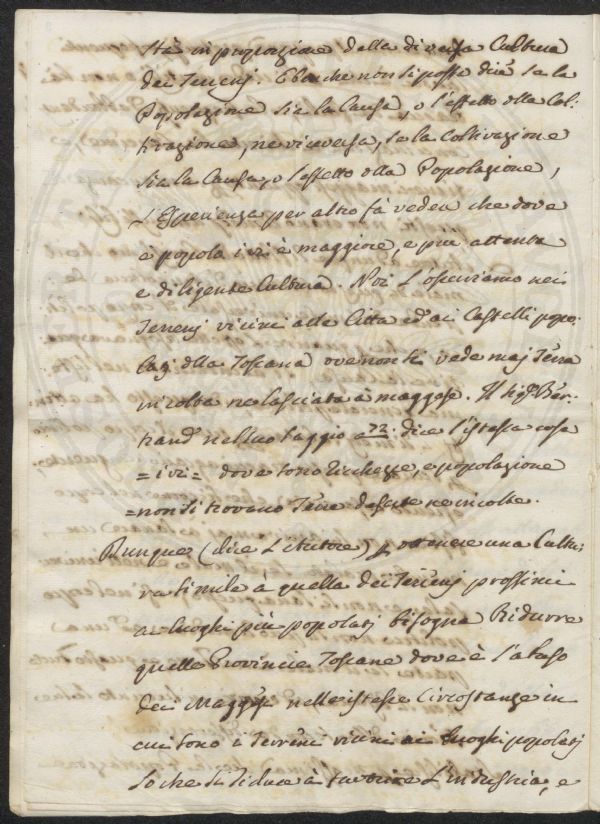 sta in proporzione della diversa Cultura
dei Terrenj. E benche non si possa dire se la
Popolazione sia la Causa, o l'effetto della Col-
tivazione, ne viceversa, se la Coltivazione
sia la Causa, o l'effetto della Popolazione,
L'Esperienza per altro fà vedere che dove
è popola ivi è maggiore, e più attenta
e diligente Cultura. Noi l'osserviamo nei
Terrenj vicini alle Città ed ai Castelli popo-
latj della Toscana ove non si vede maj Terra
incolta ne lasciata à maggese. Il Sigr Ber-
trand nel suo Saggio a 72. dice l'istessa cosa
= ivi = dove sono Ricchezze, e popolazione
= non si trovano Terre deserte ne incolte.
Dunque (dice L'Autore) p ottenere una Cultu-
ra simile à quella dei Terrenj prossimi
ai luoghi più popolatj bisogna Ridurre
quelle Provincie Toscane dove è l'abuso
dei Maggesi nelle istesse Circostanze in
cui sono i Terreni vicini ai luoghi popolatj
Lo che si riduce à favorire L'industria, e